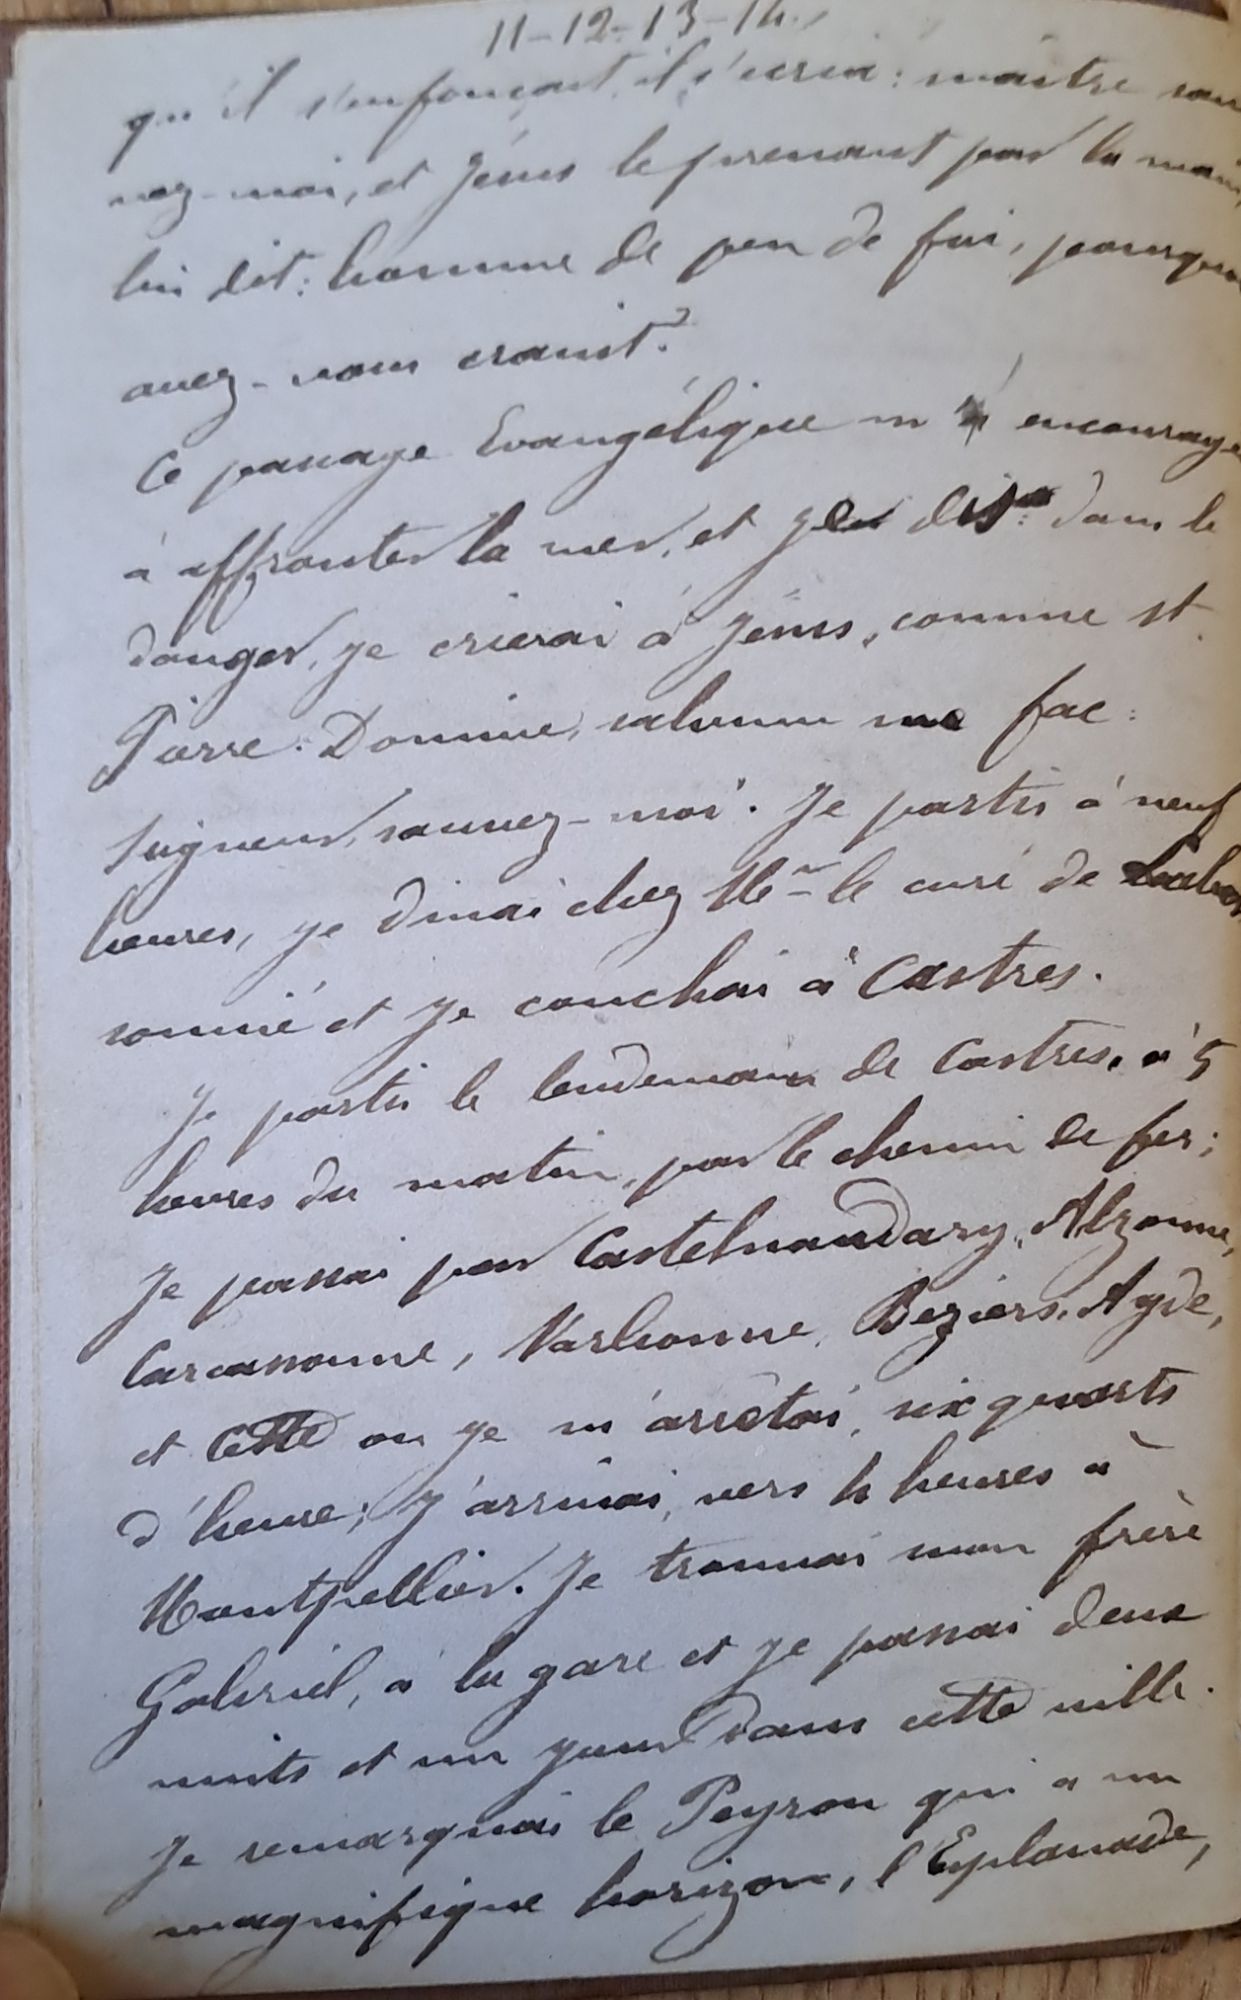 11-12-13-14.
qu'il s'enfonçait, il s'écria: maître sau
vez-moi, et Jésus le prenant par la main,
lui dit: homme de peu de foi, pourquoi
avez-vous craint?
Ce passage Evangélique m'a encouragé
à affronter la mer, et je dis: dans le
danger, je crierai à Jésus, comme st.
Pierre: Domine, salvum me fac:
Seigneur, sauvez-moi. Je partis à neuf
heures, je dinai chez Mr le curé de
et je couchai à Castres.
Je partis le lendemain de Castres, à 5
heures du matin, par le chemin de fer;
Je passai par Castelnaudary, Alzonne,
Carcassonne, Narbonne, Beziers, Agde,
et Cette ou je m'arrêtai, six quarts
d'heure; j'arrivai, vers 4 heures à
Montpellier. Je trouvai mon frère
Gabriel, à la gare et je passai deux
nuits et un jour dans cette ville.
Je remarquai le Peyrou qui a un
magnifique horizon, l'Esplanade,